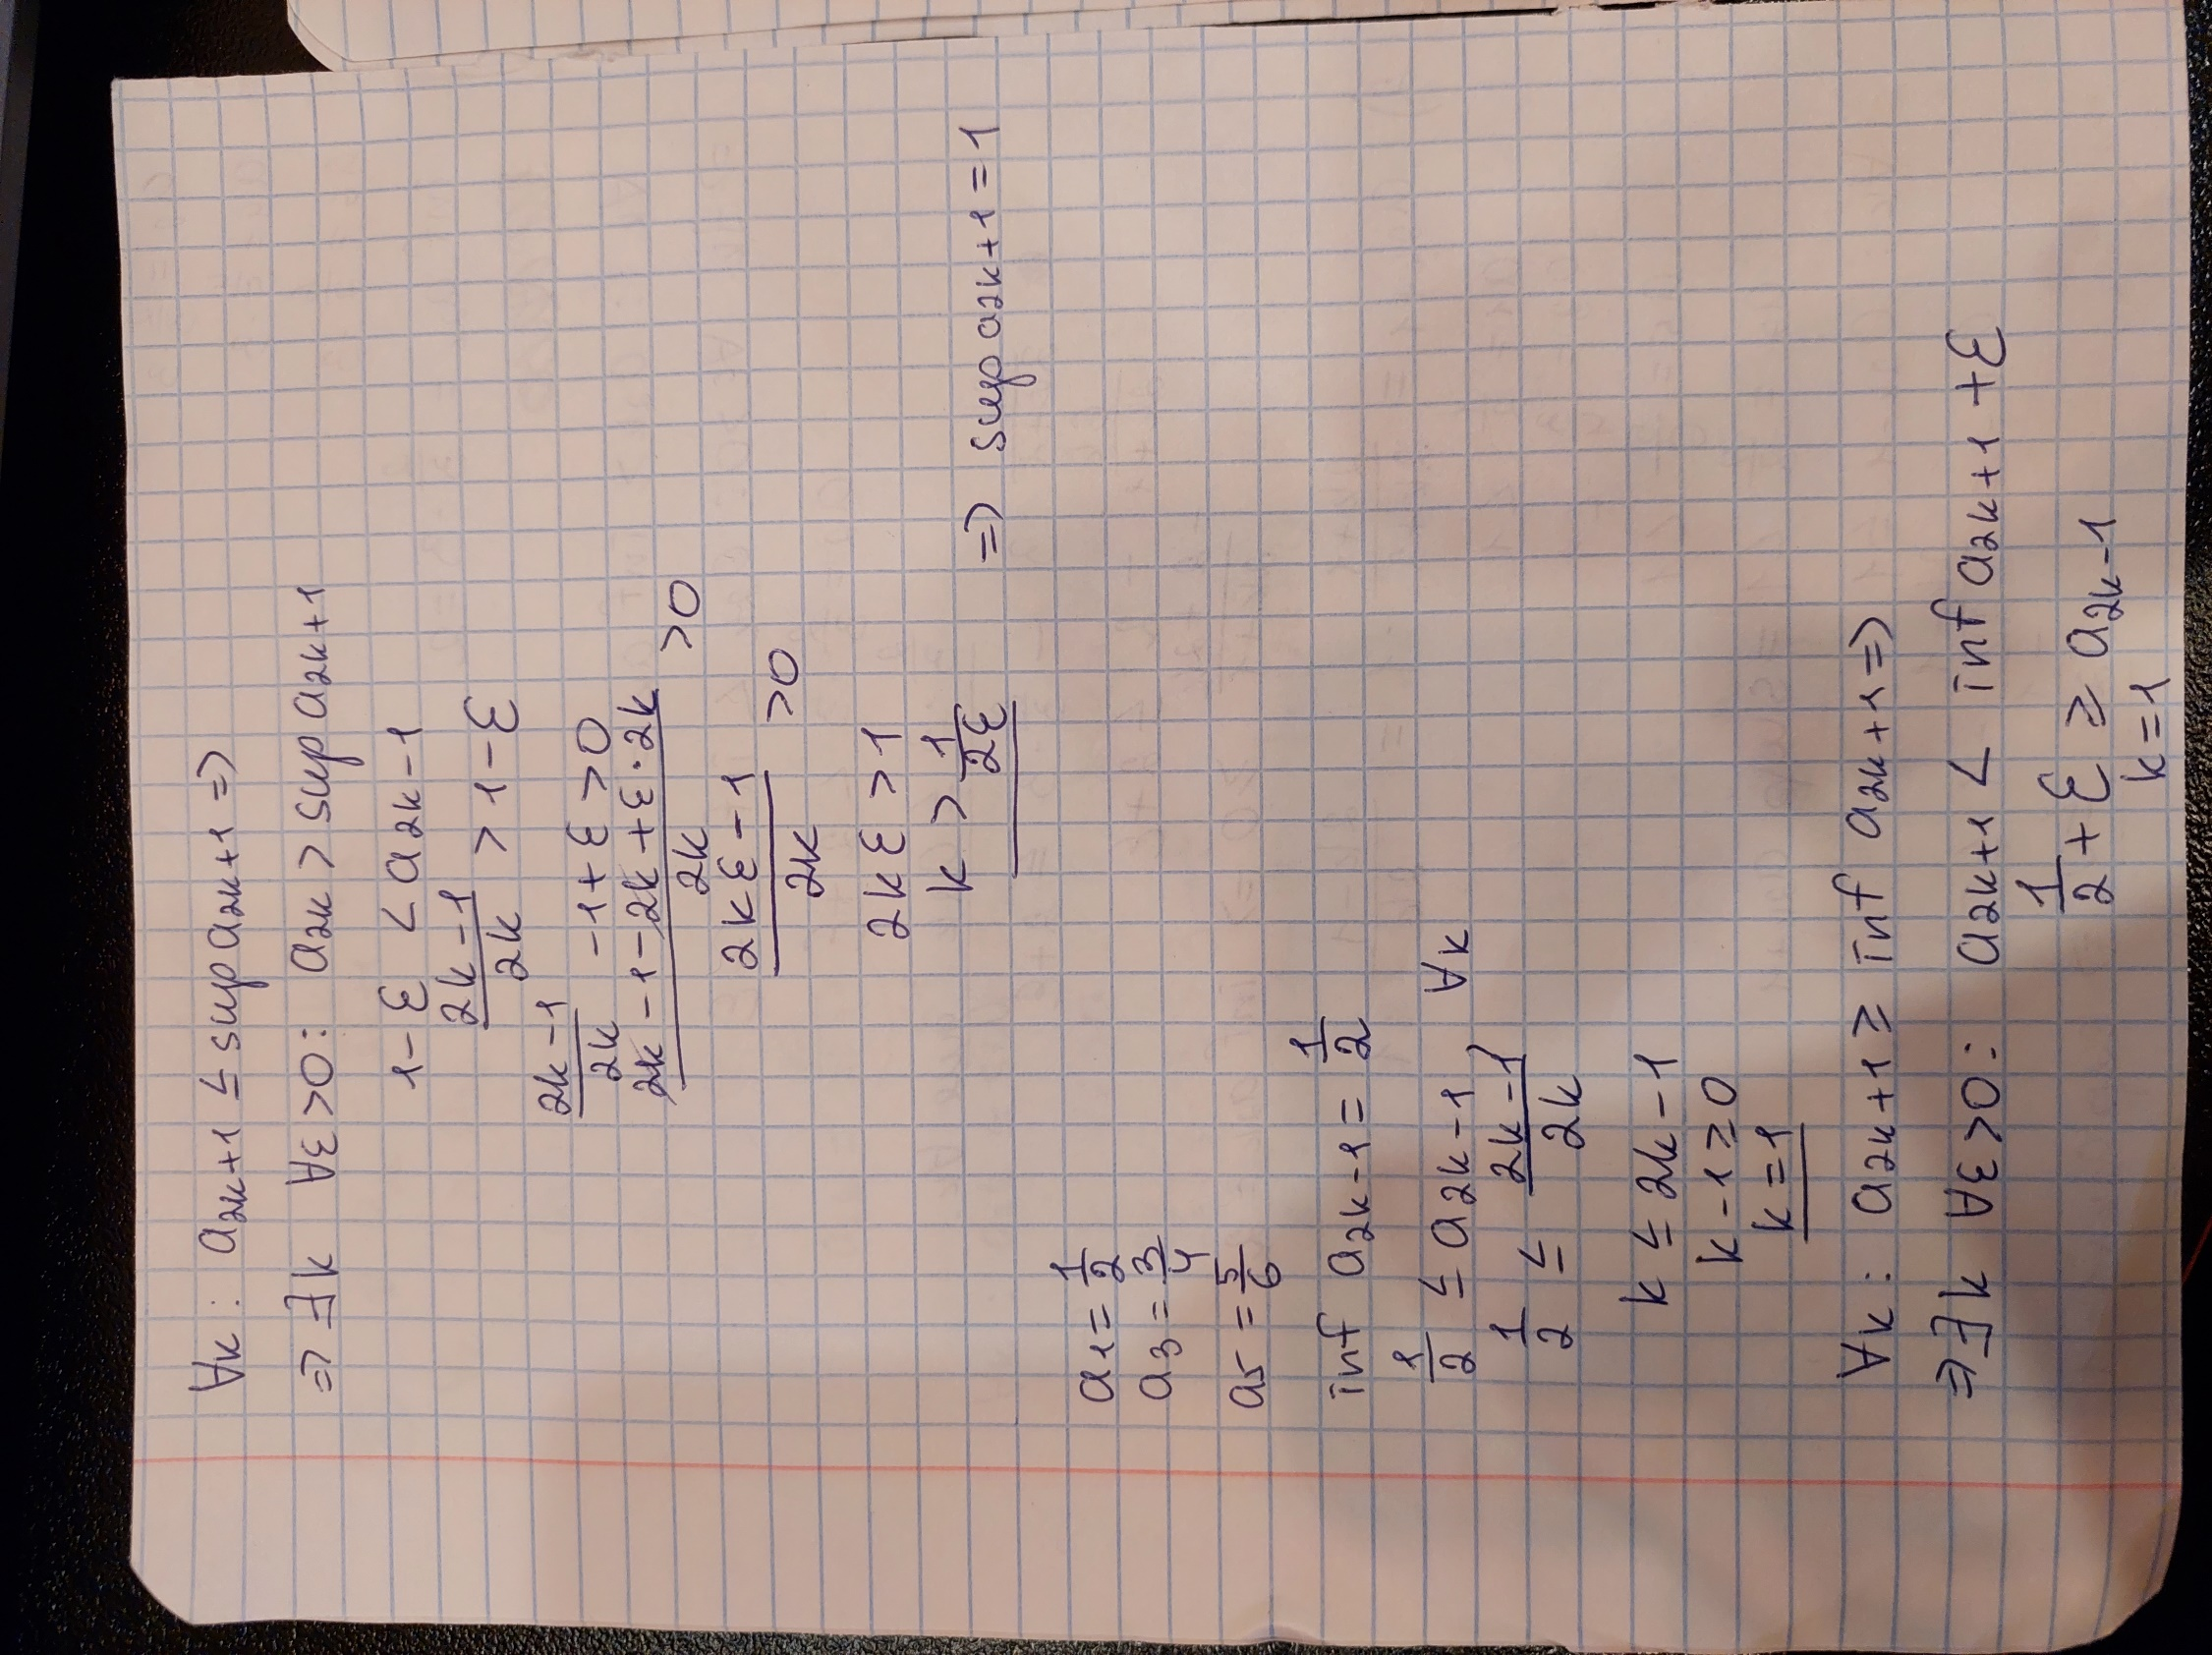 ∀k: a2k+1 ≤ sup a2k+1 =>
=> ∃k ∀ε>0: a2k > sup a2k+1
1-ε < a2k-1
(2k-1)/2k > 1-ε
(2k-1)/2k -1+ε>0
(2k-1-2k+ε·2k)/2k >0
(2kε-1)/2k >0
2kε>1
k > 1/2ε => sup a2k+1=1
a1= 1/2
a3= 3/4
a5 = 5/6
inf a2k-1= 1/2
1/2 ≤ a2k-1 ∀k
1/2 ≤ (2k-1)/2k
k ≤ 2k-1
k-1≥0
k=1
∀k: a2k+1 ≥ inf a2k+1 =>
=> ∃k ∀ε>0: a2k+1 < inf a2k+1 +ε
1/2+ε ≥ a2k-1
k=1